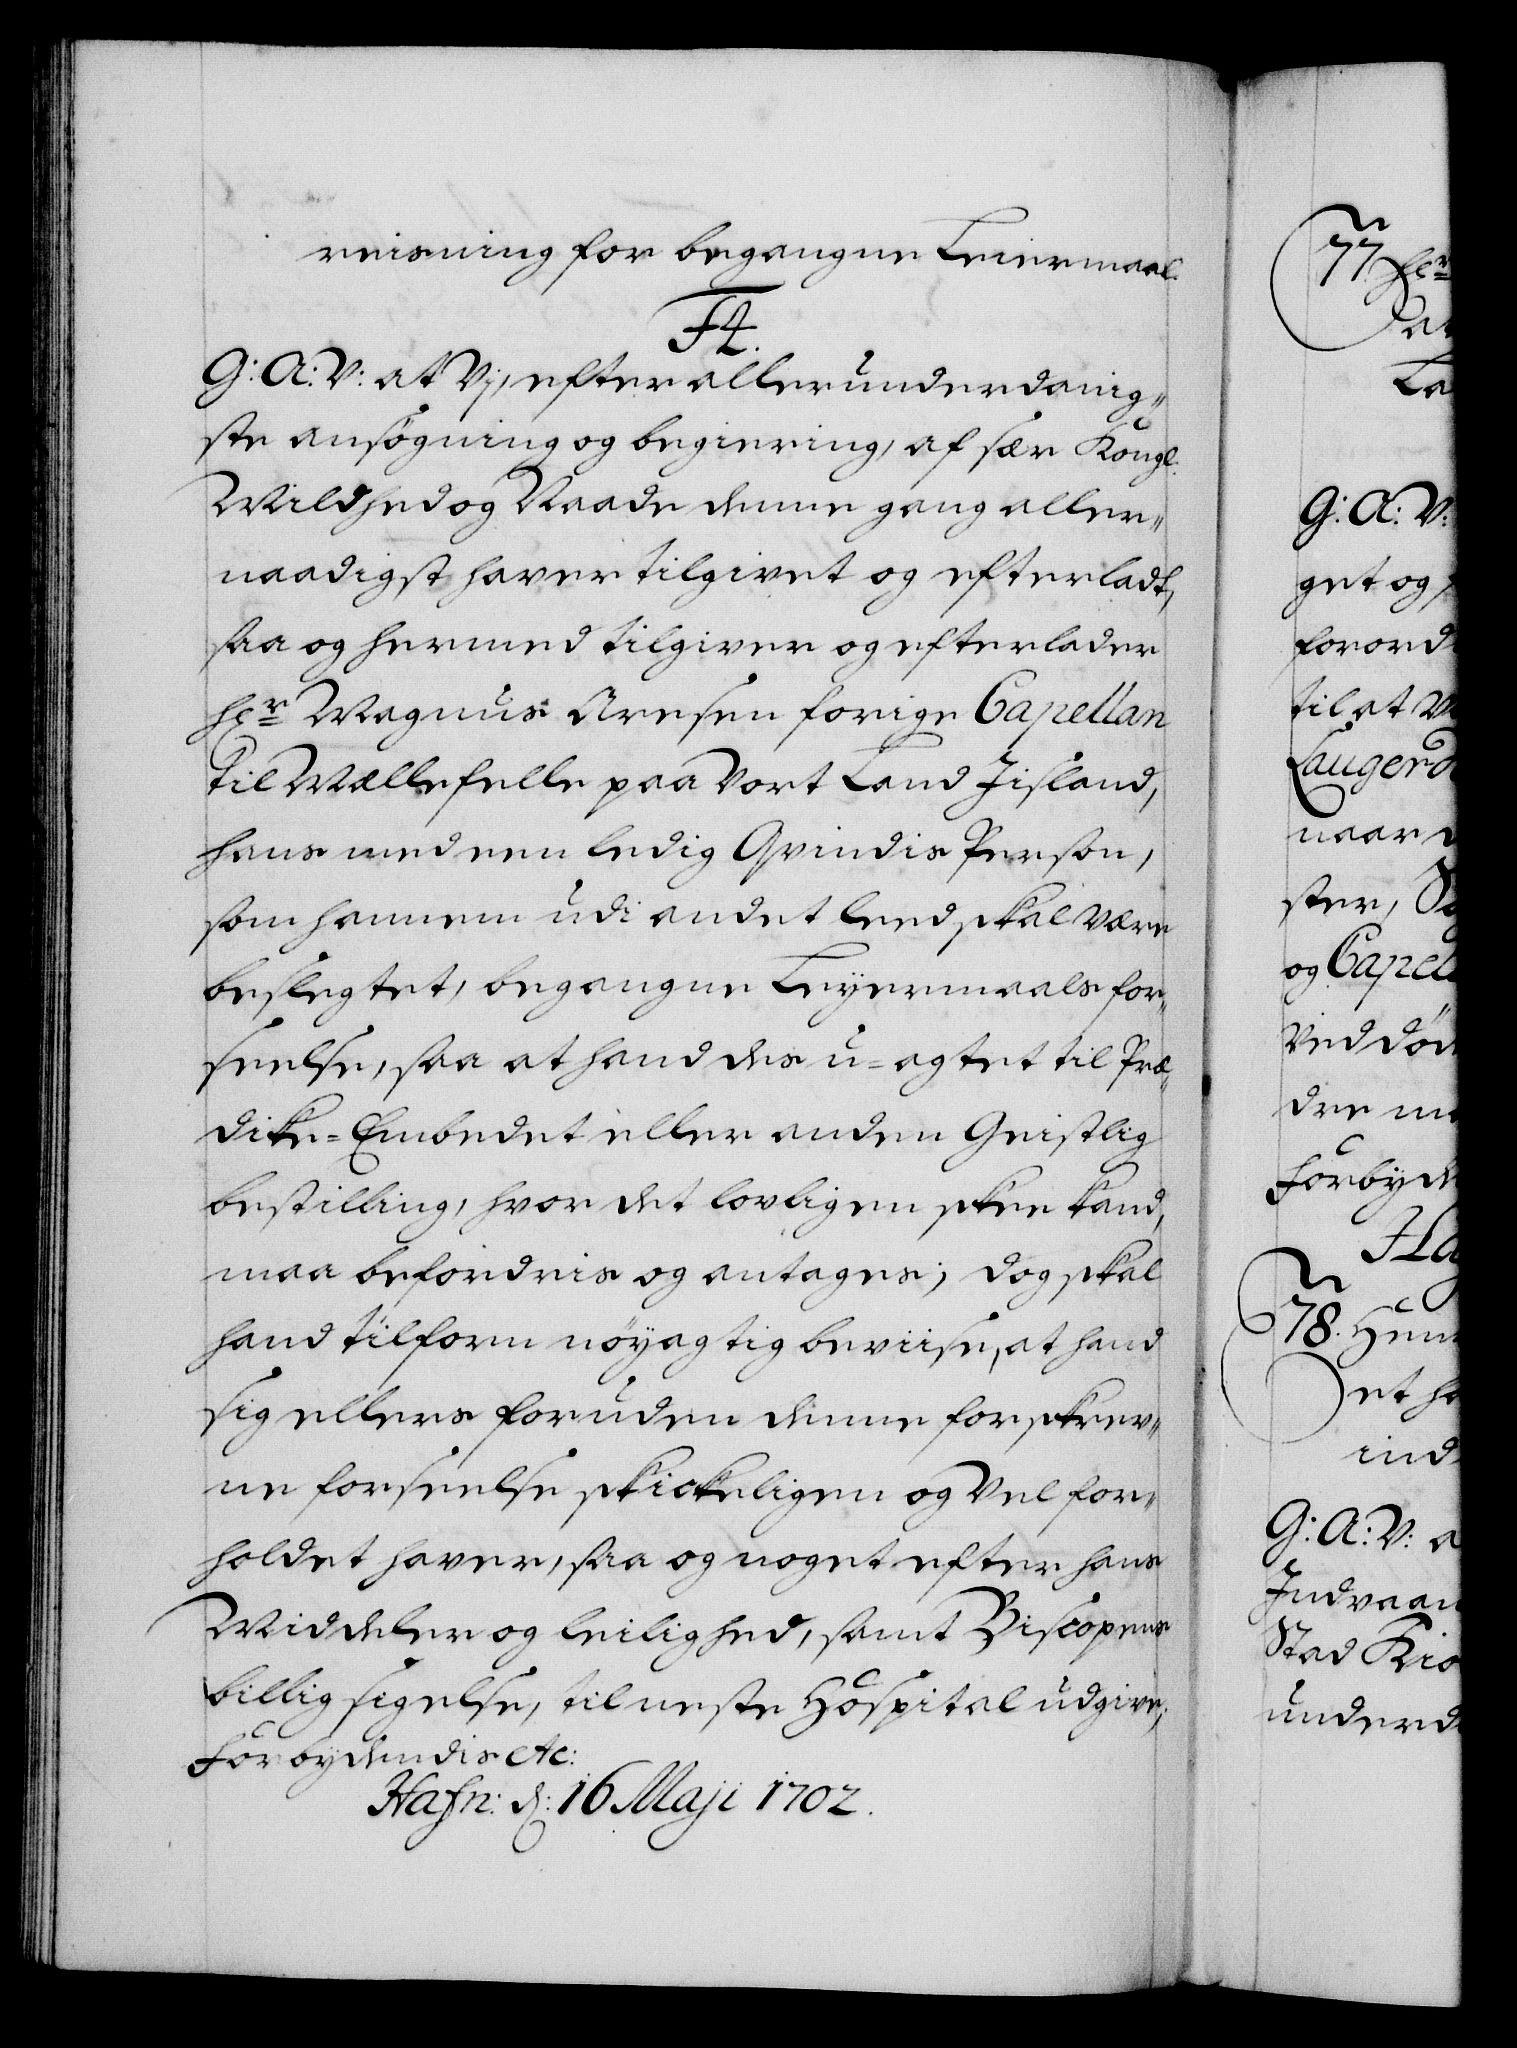 reisning for begangne Leiermaal.
F4.
G: A: V: at Vj, efter allerunderdanig-
ste ansøgning og begiering, af sær Kongl.
Mildhed og Naade denne gang aller-
naadigst haver tilgivet og efterladt,
saa og hermed tilgiver og efterlader
Hr Magnus Aresen forige Capellan
til Mællefelle paa vort Land Jisland,
hans med een ledig Qvindis Person,
som hannem udi andet leed skal være
beslegtet, begangne Leyermaals for-
seelse, saa at hand des u-agtet til Præ-
dike-Embedet eller anden Geistlig
bestilling, hvor det lovligen skee kand,
maa befordris og antages; dog skal
hand tilforn nöyagtig beviise, at hand
sig ellers foruden denne forskrev-
ne forseelse skickeligen og vel for-
holdet haver, saa og noget efter hans
Middeler og leilighed, samt Biscopens
billig sigelse, til neste Hospital udgive;
Forbydendis etc:
Hafn: d: 16 Maji 1702.
77. Hr
La
G: A: V:
get og
forord
til at
Lauger
naar
ster,
og Capell
ved död
dre
Forbyde
78.
et
ind
G: A: V: a
Indvaan
Stad Kiø
underd